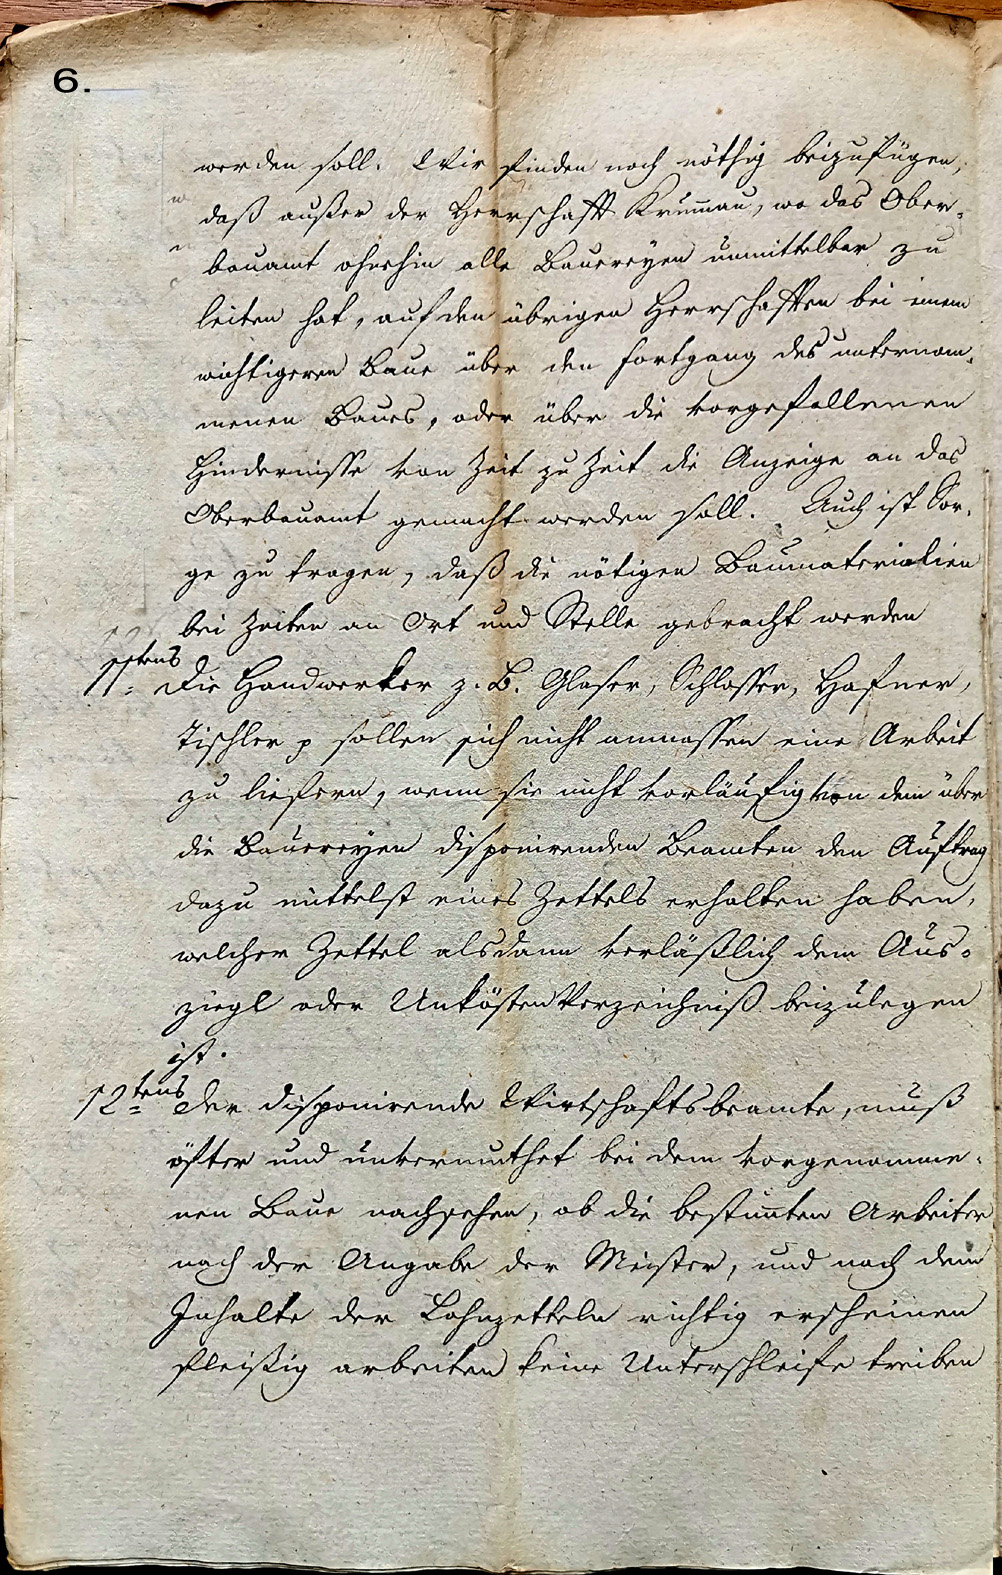 6.
werden soll. Wir finden noch nöthig beizufügen,
daß außer der Herrschafft Krum̅au, wo das Ober-
bauamt ohnehin alle Bauereyen unmittelbar zu
leiten hat, auf den übrigen Herrschafften bei einem
wichtigeren Baue über den Fortgang des unternom-
menen Baues, oder über die vorgefallenen
Hindernisse von Zeit zu Zeit die Anzeige an das
Oberbauamt gemacht werden soll. Auch ist Sor-
ge zu tragen, daß die nötigen Baumaterialien
bei Zeiten an Ort und Stelle gebracht werden
11tens Die Handwerker z. B. Glaser, Schlosser, Hafner,
Tischler p sollen sich nicht anmassen eine Arbeit
zu liefern, wenn sie nicht vorläufig von dem über
die Bauereyen disponirenden Beamten den Auftrag
dazu mittelst eines Zettels erhalten haben,
welcher Zettel alsdann verläßlich dem Aus-
ziegl oder Unkösten Verzeichniß beizulegen
ist.
12tens Der disponirende Wirtschaftsbeamte, muß
öfter und unvermuthet bei dem vorgenomme-
nen Baue nachsehen, ob die bestim̅ten Arbeiter
nach der Angabe der Meister, und nach dem
Inhalte der Lohnzetteln richtig erscheinen
fleißig arbeiten keine Unterschleife treiben